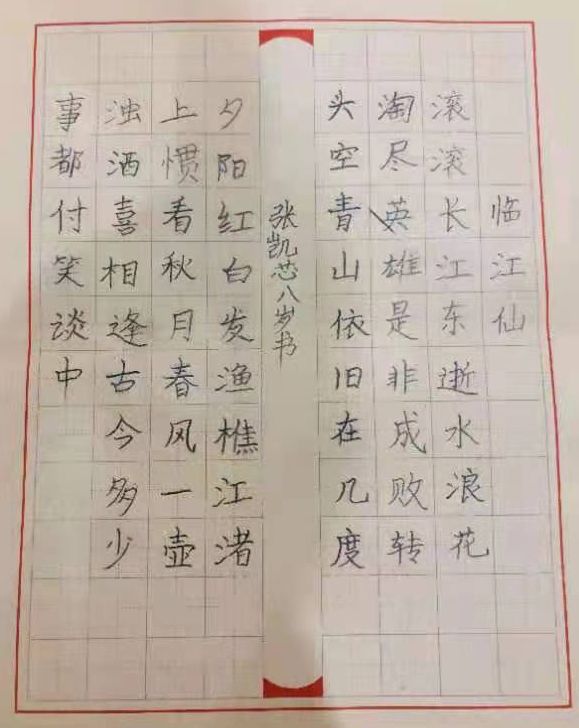 临江仙
滚滚长江东逝水浪花
淘尽英雄是非成败转
头空青山依旧在几度
张凯芯八岁书
夕阳红白发渔樵江渚
上惯看秋月春风一壶
浊酒喜相逢古今多少
事都付笑谈中